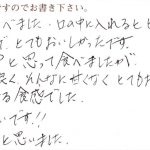 ですのでお書き下さい。
べました。口の中に入れるとと
で、とてもおいしかったです。
と思って食べましたが
みんなに甘くなくとても
る食感でした。
いです!!
と思いました。